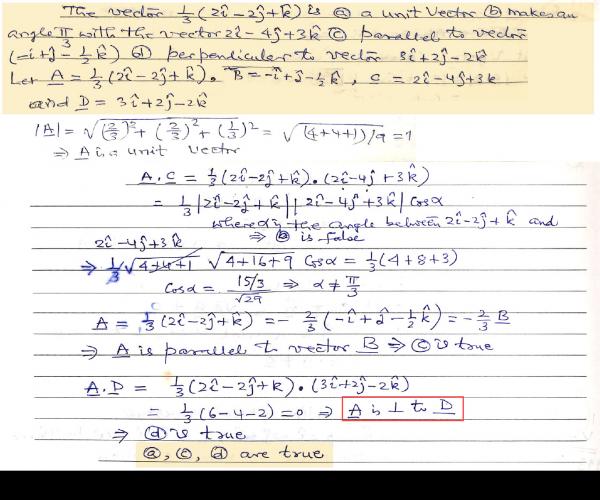 The vector 1/3 (2î-2ĵ+k̂) is ⓐ a unit vector ⓑ makes an
angle π/3 with the vector 2î-4ĵ+3k̂ ⓒ parallel to vector
(-î+ĵ-1/2k̂) ⓓ perpendicular to vector 3î+2ĵ-2k̂
Let A = 1/3(2î-2ĵ+k̂). B = -î+ĵ-1/2k̂, C = 2î-4ĵ+3k̂
and D = 3î+2ĵ-2k̂
|A| = √(2/3)²+(2/3)²+(1/3)² = √(4+4+1)/9 = 1
⇒ A is a unit vector
A.C = 1/3(2î-2ĵ+k̂).(2î-4ĵ+3k̂)
= 1/3 |2î-2ĵ+k̂||2î-4ĵ+3k̂| cosα
where α is the angle between 2î-2ĵ+k̂ and
2î-4ĵ+3k̂ ⇒ ⓑ is false
⇒ 1/3 √4+4+1 √4+16+9 Cosα = 1/3(4+8+3)
Cosα = 15/3/√29 ⇒ α ≠ π/3
A = 1/3(2î-2ĵ+k̂) = -2/3(-î+ĵ-1/2k̂) = -2/3 B
⇒ A is parallel to vector B ⇒ ⓒ is true
A.D = 1/3(2î-2ĵ+k).(3î+2ĵ-2k̂)
= 1/3(6-4-2) = 0 ⇒ A is ⊥ to D
⇒ ⓓ is true
ⓐ, ⓒ, ⓓ are true